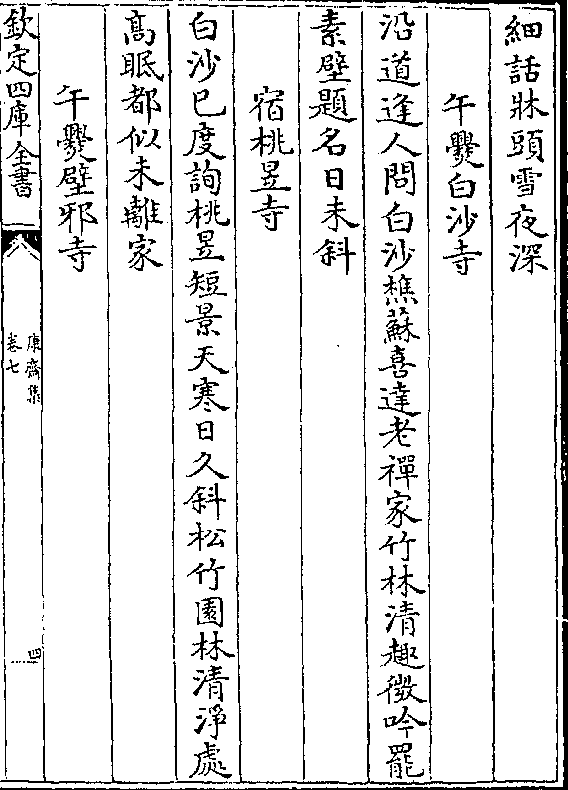 細話牀頭雪夜深
午爨白沙寺
沿道逢人問白沙樵蘇喜達老禪家竹林清趣微吟罷
素壁題名日未斜
宿桃昱寺
白沙已度詢桃昱短景天寒日久斜松竹園林清淨處
髙眠都似未離家
午爨壁邪寺
欽定四庫全書
康齋集
卷七
四